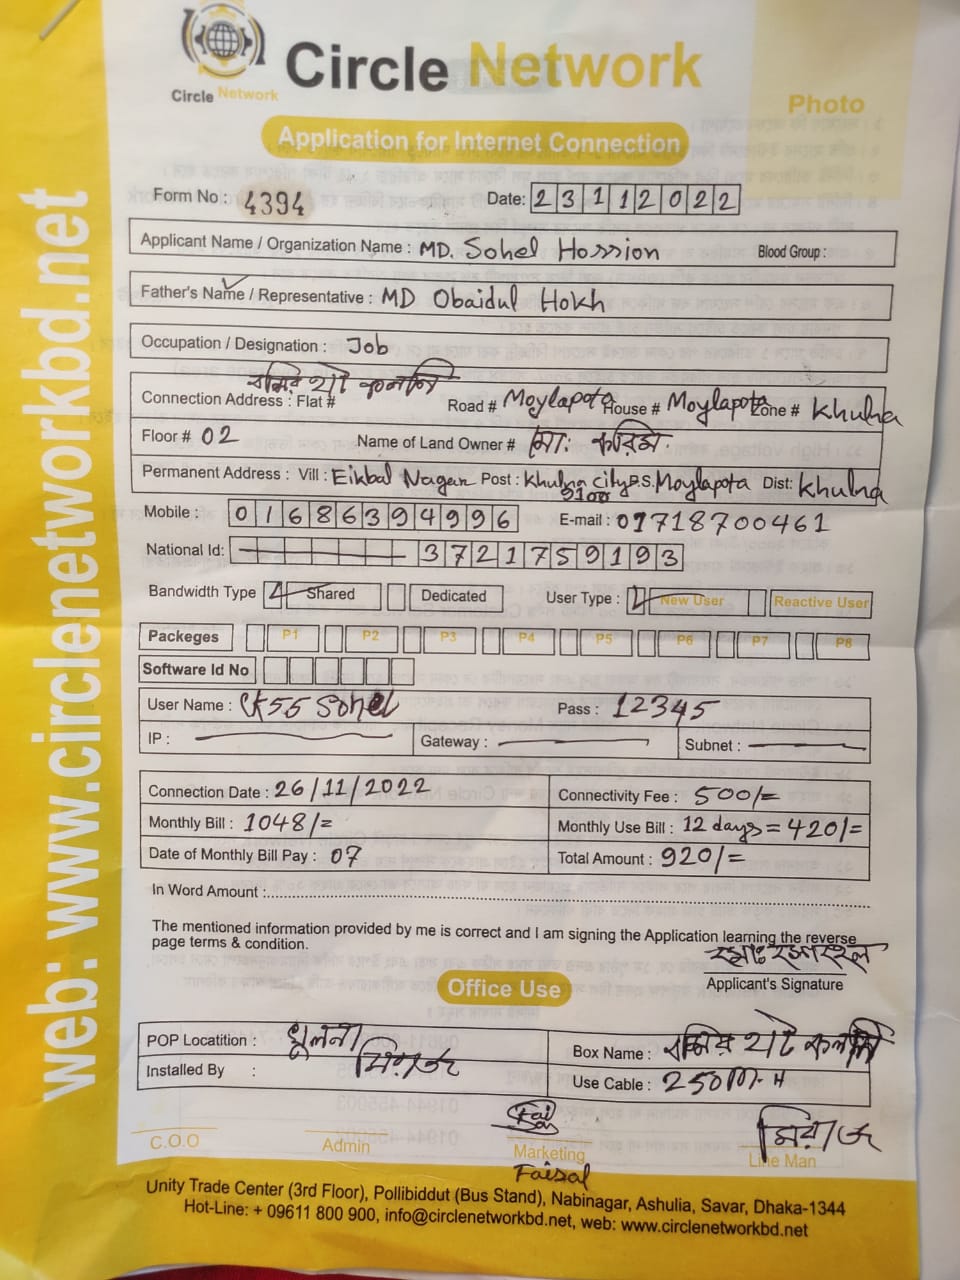 Circle Network
Circle Network
Photo
Application for Internet Connection
Form No : 4394 Date: 23112022
Applicant Name / Organization Name : MD. Sohel Hossion Blood Group :
Father's Name / Representative : MD Obaidul Hokh
Occupation / Designation : Job
Connection Address : Flat # Road # Moylapota House # Moylapota Zone # Khulna
Floor # 02 Name of Land Owner # মো: করিম
Permanent Address : Vill : Eikbal Nagar Post : Khulna City P.S. Moylapota Dist: Khulna
9100
Mobile : 01686394996 E-mail : 01718700461
National Id: 3721759193
Bandwidth Type Shared Dedicated User Type : New User Reactive User
Packeges P1 P2 P3 P4 P5 P6 P7 P8
Software Id No
User Name : Sohel Pass : 12345
IP : Gateway : Subnet :
Connection Date : 26/11/2022 Connectivity Fee : 500/=
Monthly Bill : 1048/= Monthly Use Bill : 12 days = 420/=
Date of Monthly Bill Pay : 07 Total Amount : 920/=
In Word Amount :
The mentioned information provided by me is correct and I am signing the Application learning the reverse
page terms & condition.
Applicant's Signature
Office Use
POP Locatition : খুলনা Box Name :
Installed By : মিরাজ Use Cable : 250m
C.O.O Admin Marketing Line Man
Faisal মিরাজ
Unity Trade Center (3rd Floor), Pollibiddut (Bus Stand), Nabinagar, Ashulia, Savar, Dhaka-1344
Hot-Line: + 09611 800 900, info@circlenetworkbd.net, web: www.circlenetworkbd.net
web: www.circlenetworkbd.net